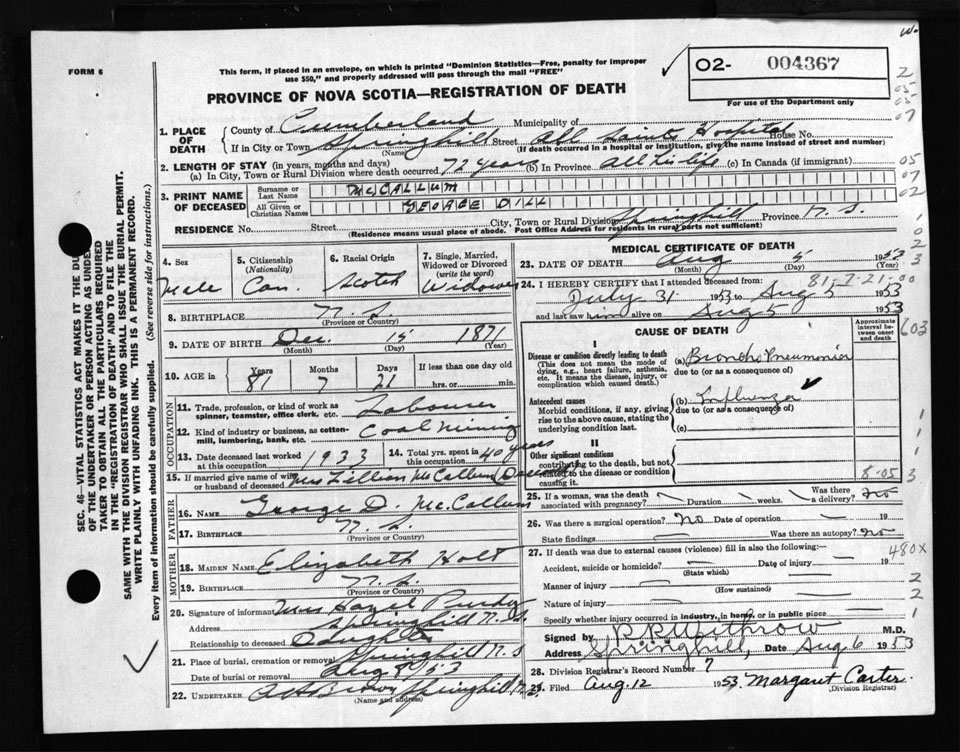 FORM 6
This form, if placed in an envelope, on which is printed "Dominion Statistics—Free, penalty for improper
use $50," and properly addressed will pass through the mail "FREE"
PROVINCE OF NOVA SCOTIA—REGISTRATION OF DEATH
O2- 004367
For use of the Department only
1. PLACE OF DEATH
County of Cumberland Municipality of
If in City or Town Springhill Street All Saints Hospital House No.
(Name) (If death occurred in a hospital or institution, give the name instead of street and number)
2. LENGTH OF STAY (in years, months and days)
(a) In City, Town or Rural Division where death occurred 72 years (b) In Province all his life (c) In Canada (if immigrant)
3. PRINT NAME OF DECEASED
Surname or Last Name McCALLUM
All Given or Christian Names GEORGE DILL
RESIDENCE No. Street City, Town or Rural Division Springhill Province N.S.
(Residence means usual place of abode. Post Office Address for residents in rural parts not sufficient)
4. Sex
Male
5. Citizenship
(Nationality)
Can.
6. Racial Origin
Scotch
7. Single, Married, Widowed or Divorced
(write the word)
Widower
8. BIRTHPLACE N.S.
(Province or Country)
9. DATE OF BIRTH Dec. 15 1871
(Month) (Day) (Year)
10. AGE in
Years 81
Months 7
Days 21
If less than one day old
hrs. or min.
OCCUPATION
11. Trade, profession, or kind of work as
spinner, teamster, office clerk, etc. Labourer
12. Kind of industry or business, as cotton-
mill, lumbering, bank, etc. Coal Mining
13. Date deceased last worked
at this occupation 1933
14. Total yrs. spent in
this occupation 40 years
15. If married give name of wife
or husband of deceased Mrs Lillian McCallum
FATHER
16. NAME George D. McCallum
17. BIRTHPLACE N.S.
(Province or Country)
MOTHER
18. MAIDEN NAME Elizabeth Holt
19. BIRTHPLACE N.S.
(Province or Country)
20. Signature of informant Mrs Hazel Purdy
Address Springhill N.S.
Relationship to deceased Daughter
21. Place of burial, cremation or removal Springhill N.S
Date of burial or removal Aug 8
22. UNDERTAKER A H Brown Springhill N.S.
(Name and address)
MEDICAL CERTIFICATE OF DEATH
23. DATE OF DEATH Aug 5 1953
(Month) (Day) (Year)
81-7-21-00
24. I HEREBY CERTIFY that I attended deceased from:
July 31 1953 to Aug 5 1953
and last saw him alive on Aug 5 1953
CAUSE OF DEATH
Approximate interval between onset and death
I
Disease or condition directly leading to death
(This does not mean the mode of
dying, e.g., heart failure, asthenia,
etc. It means the disease, injury, or
complication which caused death.)
(a) Broncho Pneumonia
due to (or as a consequence of)
Antecedent causes
Morbid conditions, if any, giving
rise to the above cause, stating the
underlying condition last.
(b) Influenza
due to (or as a consequence of)
(c)
II
Other significant conditions
contributing to the death, but not
related to the disease or condition
causing it.
8-05
25. If a woman, was the death
associated with pregnancy? Duration weeks. Was there
a delivery? no
26. Was there a surgical operation? No Date of operation 19
State findings Was there an autopsy? No
27. If death was due to external causes (violence) fill in also the following:—
480X
Accident, suicide or homicide? Date of injury 19
(State which)
Manner of injury
(How sustained)
Nature of injury
Specify whether injury occurred in industry, in home, or in public place
Signed by Withrow M.D.
Address Springhill, Date Aug 6 1953
28. Division Registrar's Record Number 7
29. Filed Aug. 12 1953. Margaret Carter
(Division Registrar)
SEC. 46—VITAL STATISTICS ACT MAKES IT THE
OF THE UNDERTAKER OR PERSON ACTING AS
TAKER TO OBTAIN ALL THE PARTICULARS REQUIRED
IN THE "REGISTRATION OF DEATH" AND TO FILE THE
SAME WITH THE DIVISION REGISTRAR WHO SHALL ISSUE THE BURIAL PERMIT.
WRITE PLAINLY WITH UNFADING INK. THIS IS A PERMANENT RECORD.
Every item of information should be carefully supplied. (See reverse side for instructions.)